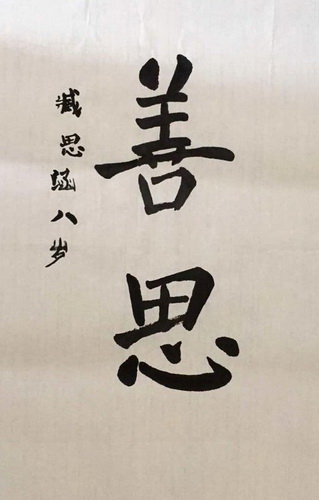 善思
臧思涵八岁